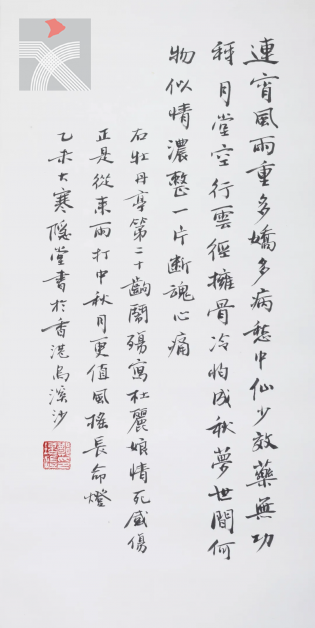 連宵風雨重多嬌多病愁中仙少效藥無功
拜月堂空行雲徑擁骨冷怕成秋夢世間何
物似情濃整一片断魂心痛
右牡丹亭第二十齣鬧殤寫杜麗娘情死感傷
正是從来雨打中秋月更值風搖長命燈
乙未大寒隐堂書於香港烏溪沙